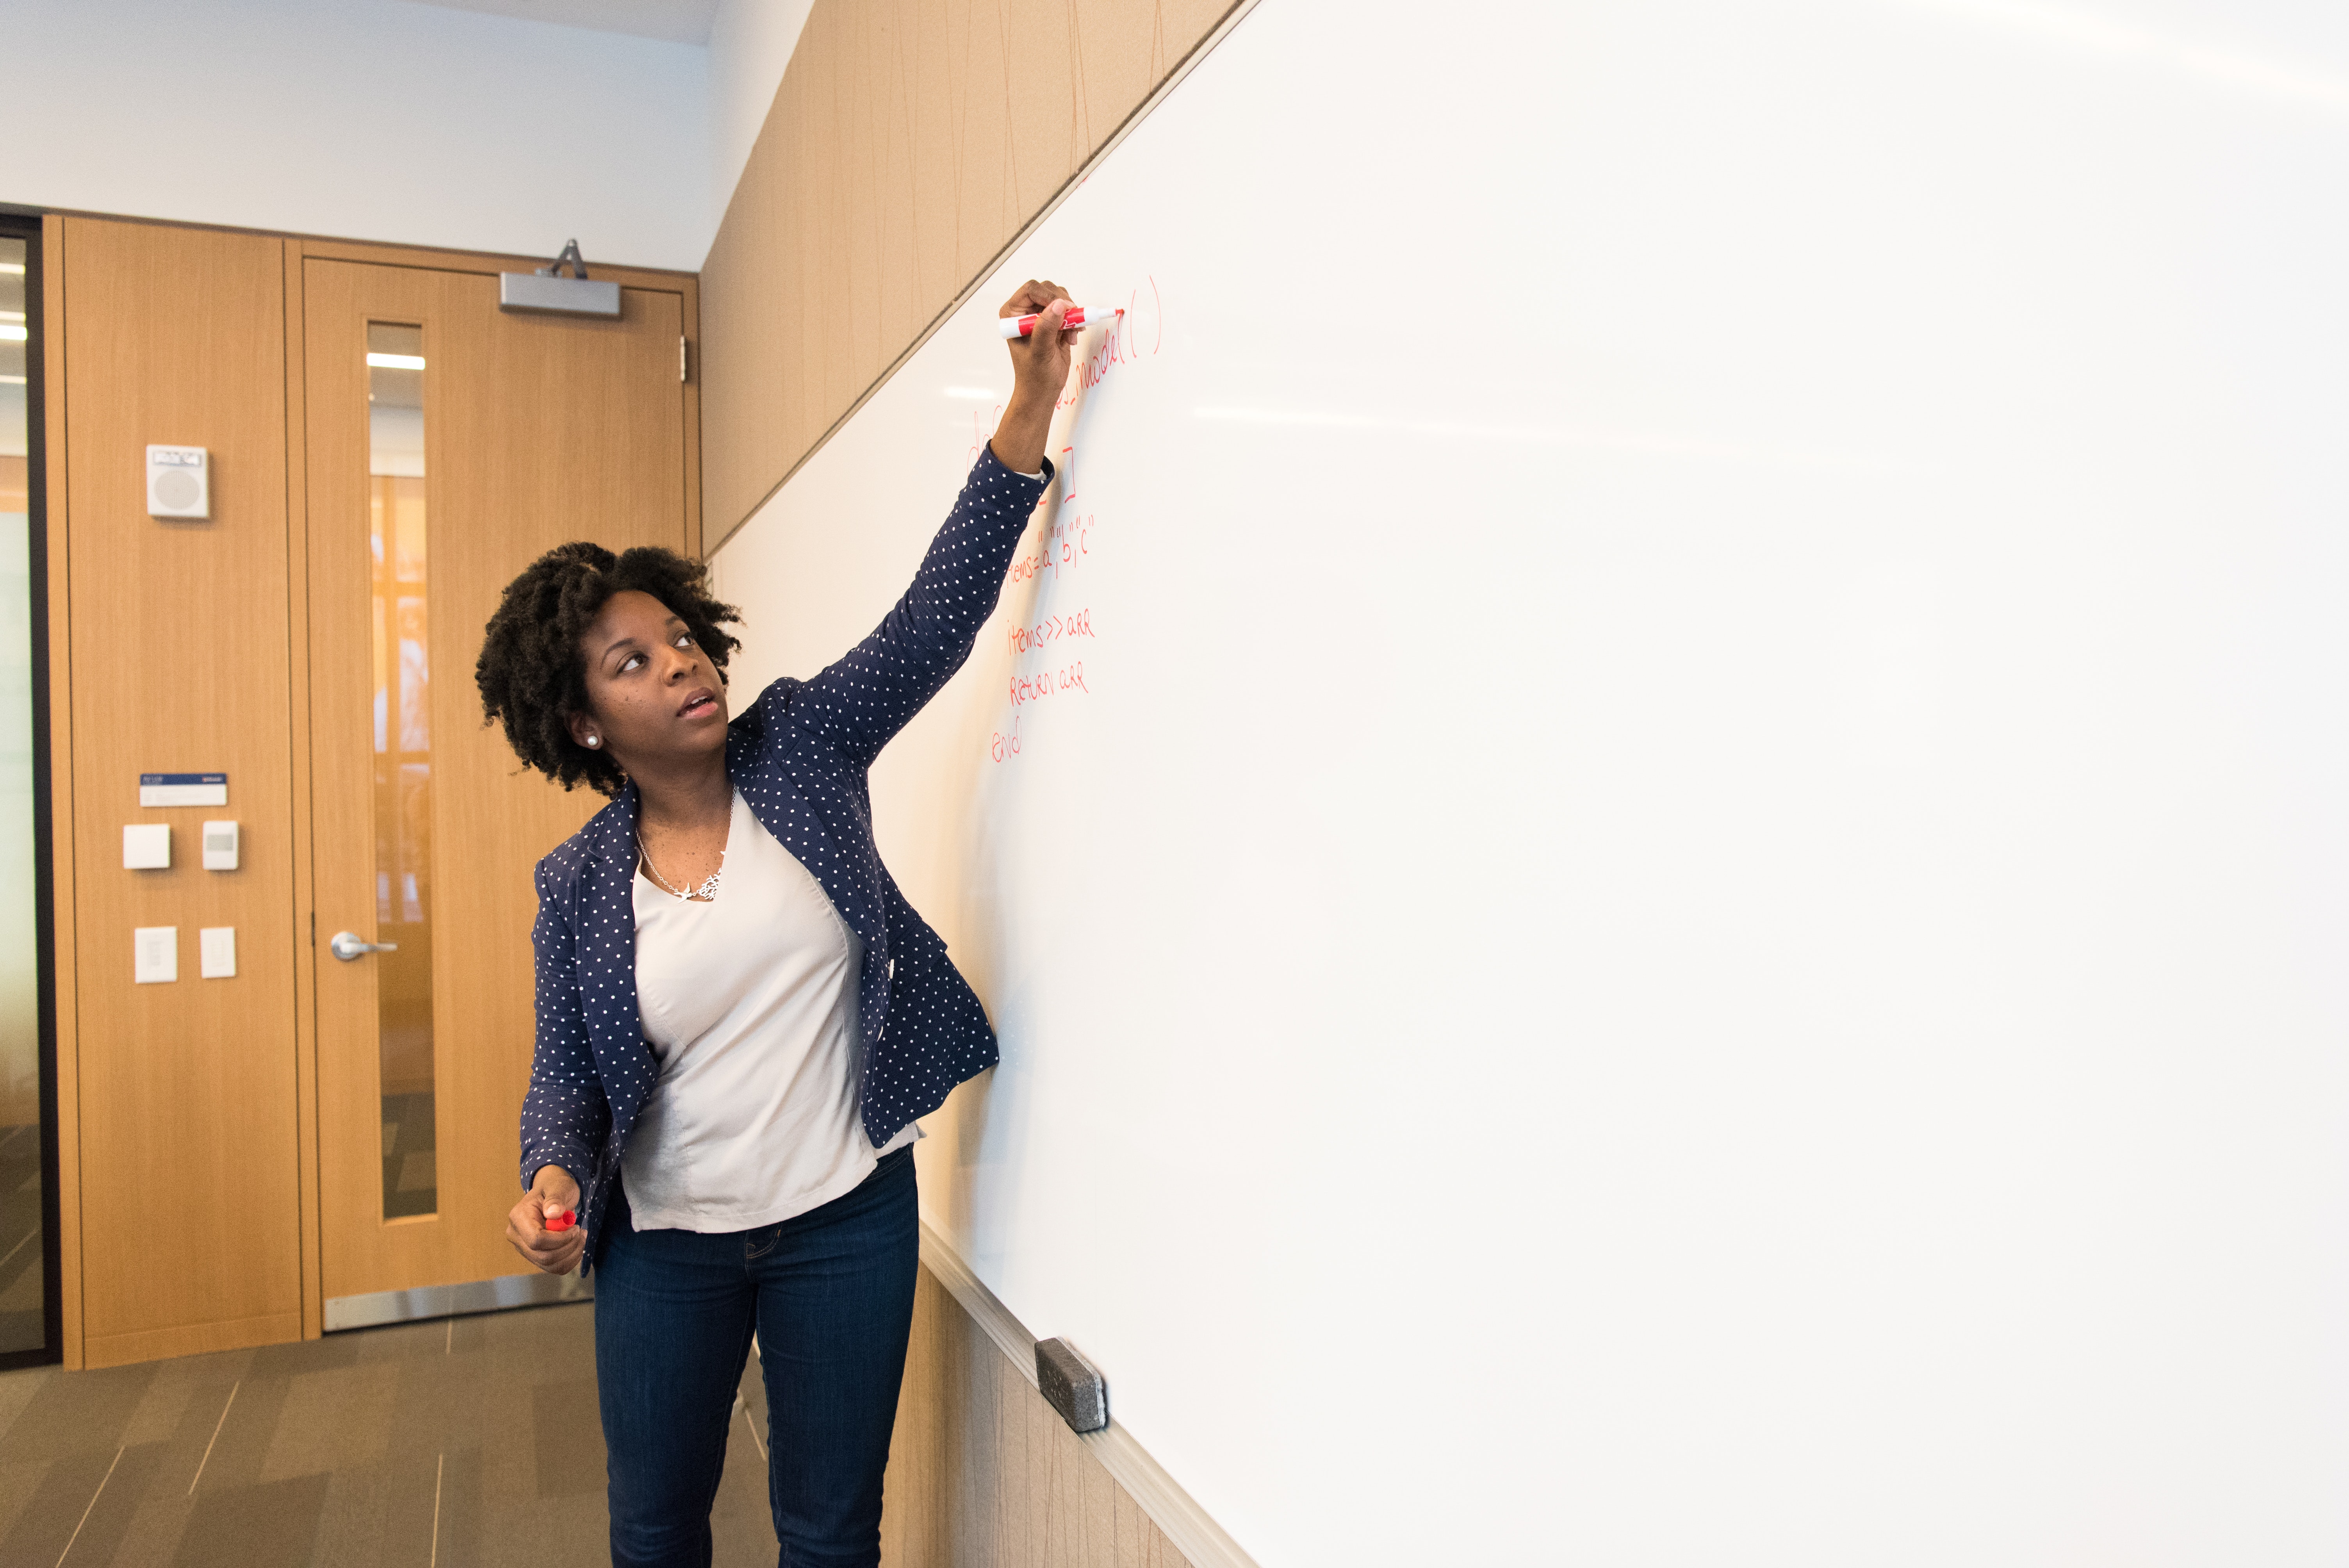 _model()
]
items="a","b","c"
items>>arr
Return arr
end